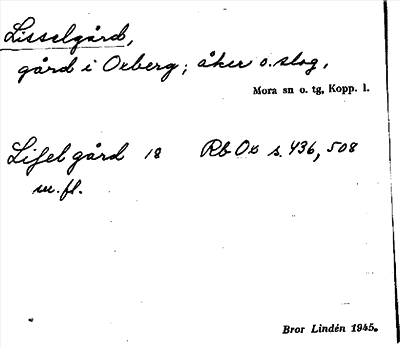 Lisselgård,
gård i Oxberg; åker o. slog,
Mora sn o. tg, Kopp. l.
Lisel gård 18 Rb Ox s. 436, 508
m. fl.
Bror Lindén 1945.